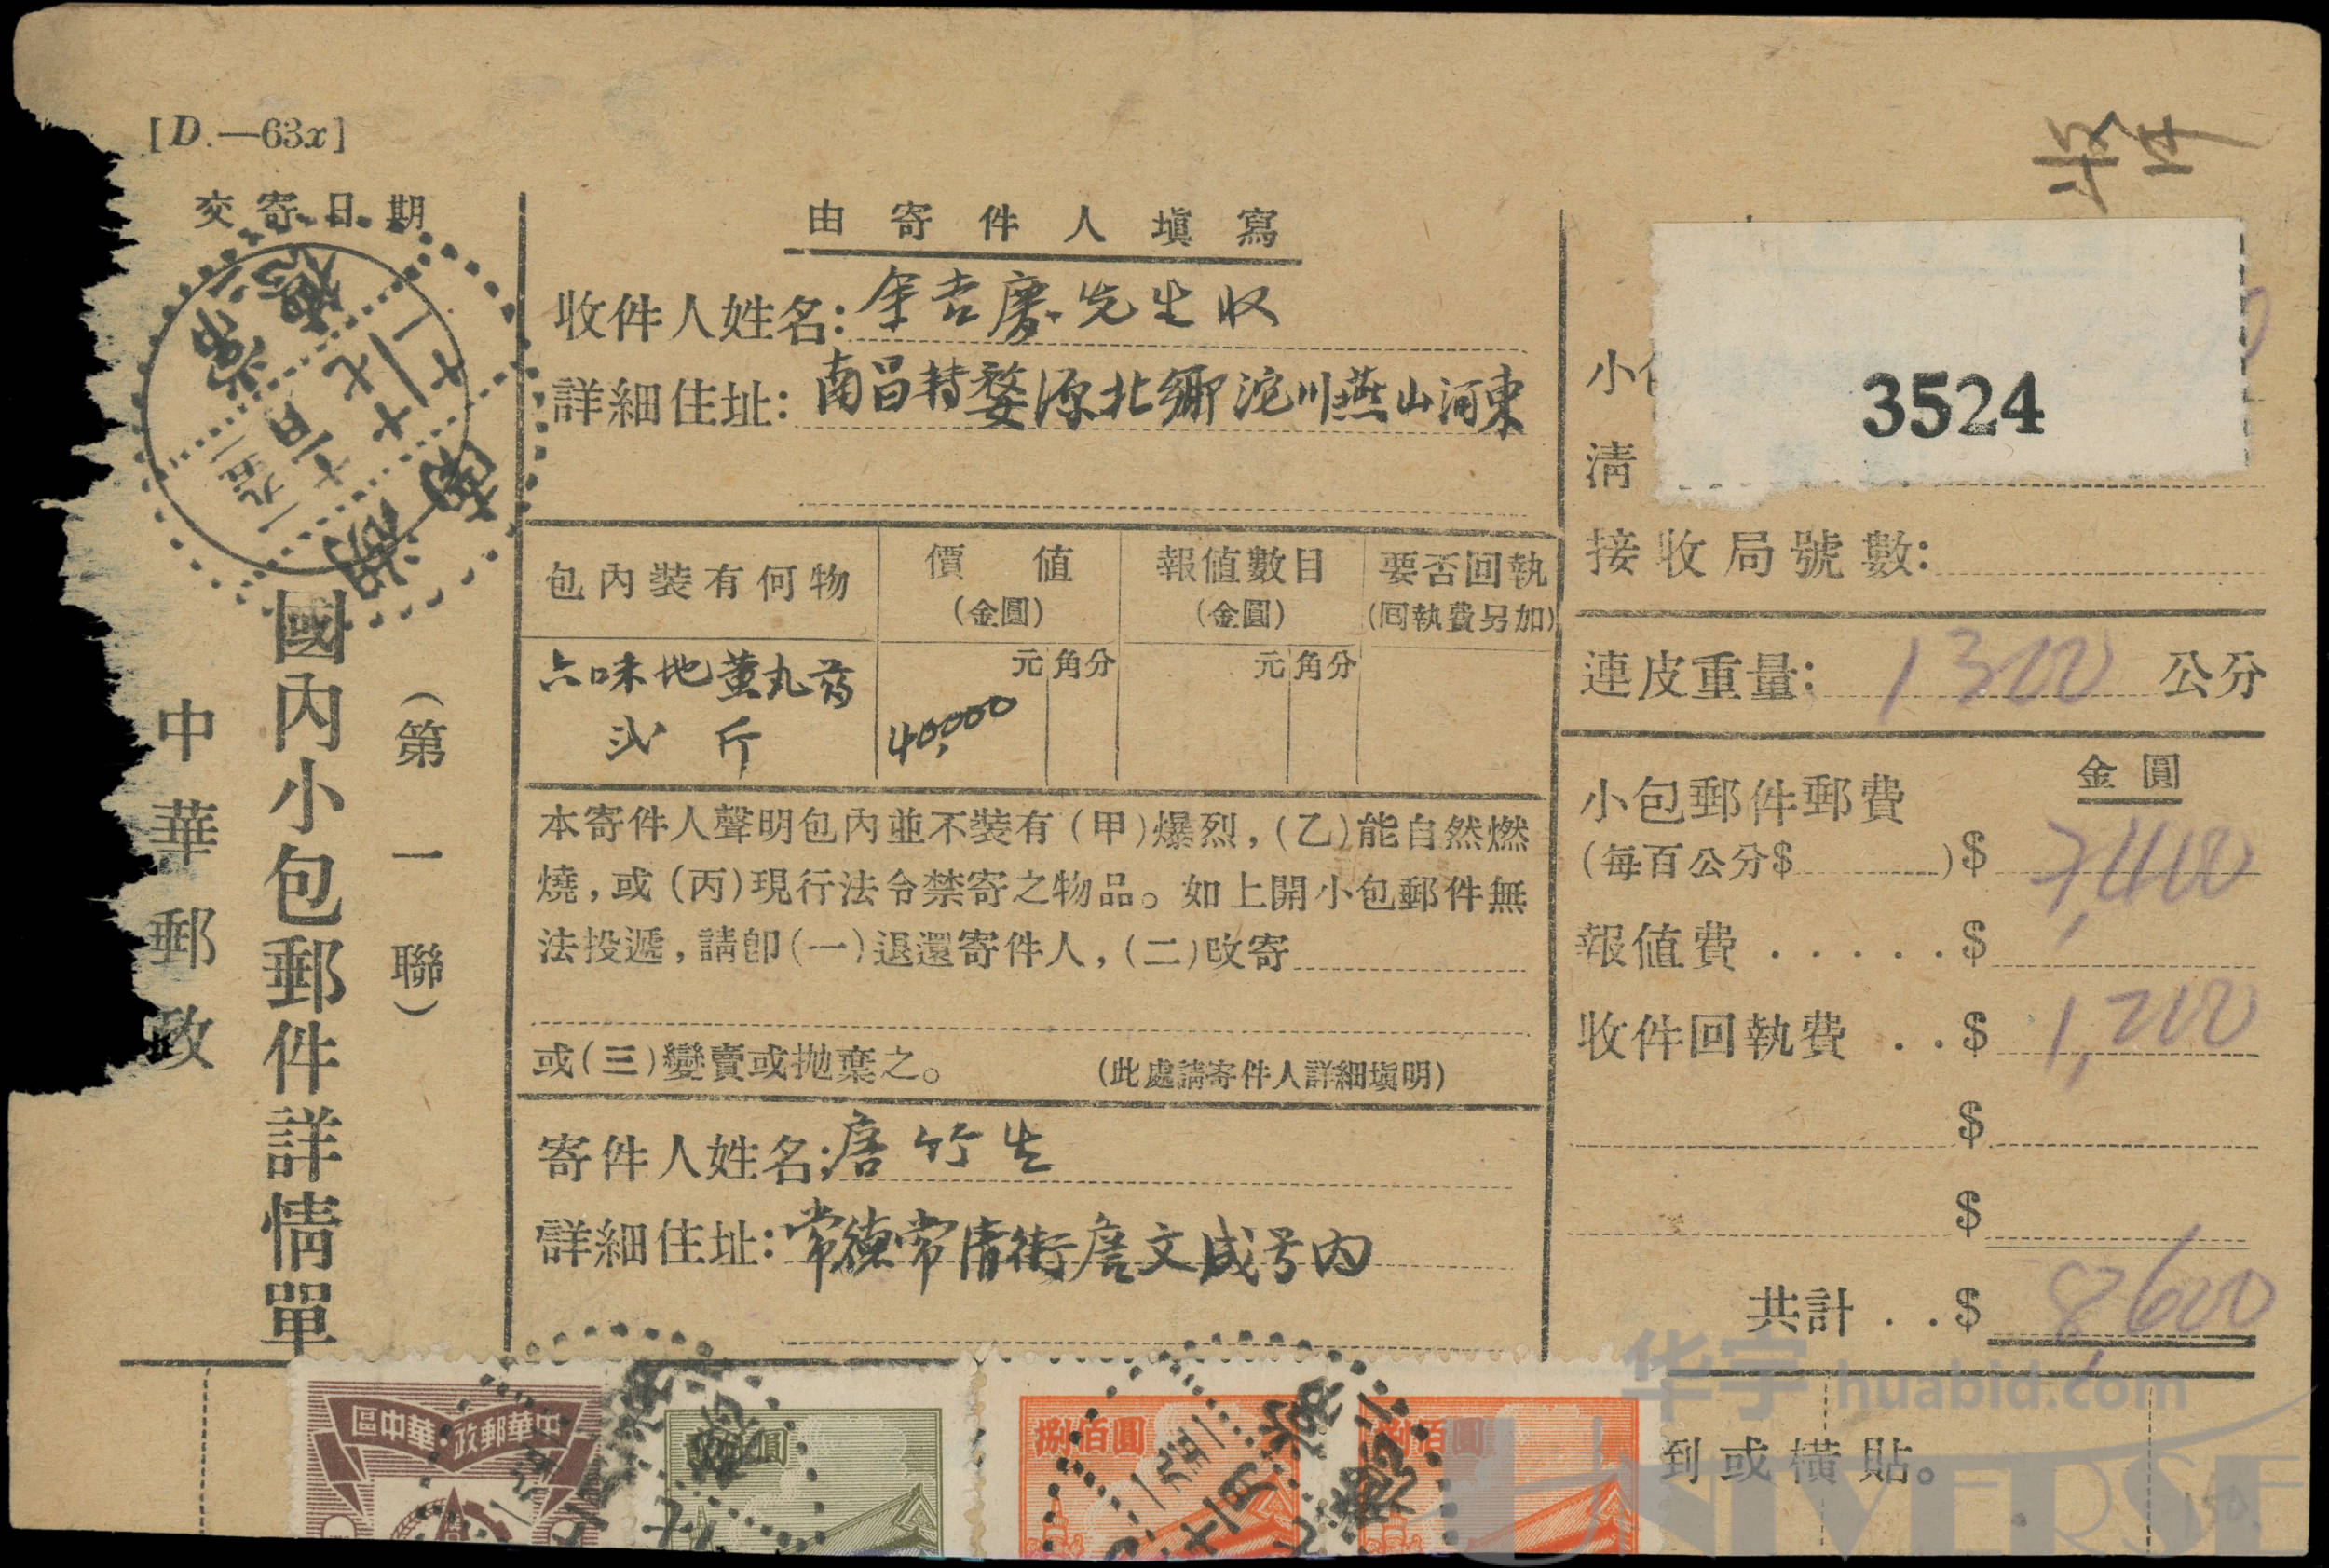 [D.—63x]
交寄日期
中華郵政
國內小包郵件詳情單
(第一聯)
由寄件人塡寫
收件人姓名:余吉慶先生收
詳細住址:南昌轉婺源北鄉沱川燕山河東
包內裝有何物
價值
(金圓)
報值數目
(金圓)
要否回執
(回執費另加)
元 角 分
元 角 分
六味地黃丸葯
弍斤
40,000
本寄件人聲明包內並不裝有(甲)爆烈,(乙)能自然燃
燒,或(丙)現行法令禁寄之物品。如上開小包郵件無
法投遞,請卽(一)退還寄件人,(二)改寄
或(三)變賣或拋棄之。
(此處請寄件人詳細塡明)
寄件人姓名:詹竹生
詳細住址:常德常清街詹文成号內
3524
小
清
接收局號數:
連皮重量: 1300 公分
金圓
小包郵件郵費
(每百公分$ )$ 7,400
報值費 . . . . . $
收件回執費 . . $ 1,200
$
$
共計 . . $ 8,600
到或橫貼。
中華郵政·華中區
捌佰圓
捌佰圓
华宇 huabid.com
UNIVERSE